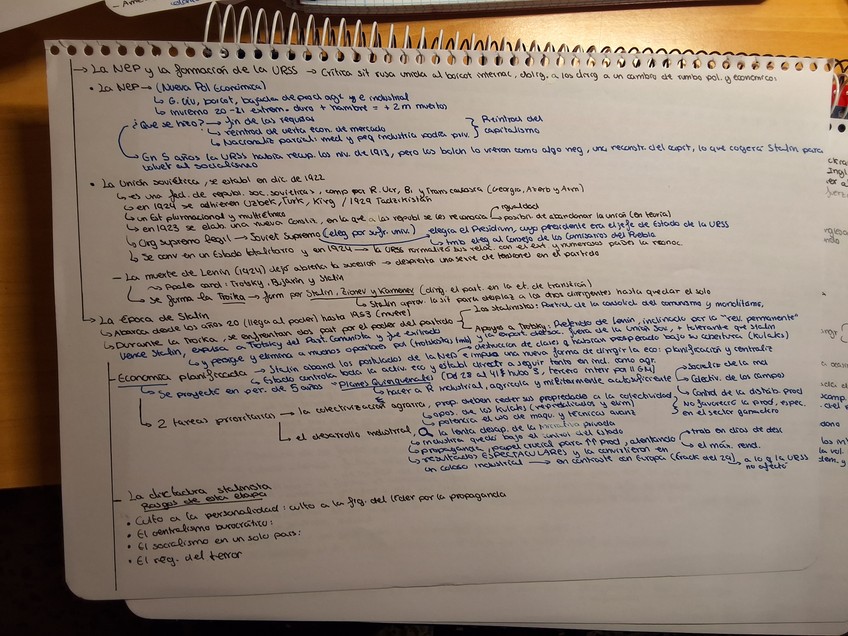 → La NEP y la formación de la URSS → Crítica sit rusa unida al boicot internac, oblig. a los dirig a un cambio de rumbo pol. y económico:
• La NEP → (Nueva Pol Económica)
↳ G. civ, boicot, bajada de prod agr e industrial
↳ invierno 20-21 extrem. duro + hambre = + 2m muertos
¿Qué se hizo? → fin de las requisas
↳ reintrod de cierta econ. de mercado
↳ Nacionaliz parcial: med y peq industria podía priv.
} Reintrod del capitalismo
↳ En 5 años la URSS había recup. los niv. de 1913, pero los bolch lo vieron como algo neg, una reconstr. del capit, lo que cogerá Stalin para
volver al socialismo
• La Unión soviética, se establ en dic de 1922
↳ es una fed. de republ. soc. soviéticas, comp por R. Ucr, B. y Transcaucasia (Georgia, Azerb y Arm)
↳ en 1924 se adhieren Uzbek, Turk, Kirg / 1929 Tadzhikistán
↳ un Est plurinacional y multiétnico
↳ en 1923 se elab. una nueva Constit, en la que a las republ se les reconocía
→ igualdad
→ posibil. de abandonar la unión (en teoría)
↳ Org supremo legisl → Soviet Supremo (eleg por sufr. univ.)
elegía el Presidium, cuyo presidente era el jefe de Estado de la URSS
↳ tmb eleg al Consejo de los Comisarios del Pueblo
↳ Se conv en un Estado totalitario y en 1924 → la URSS normalizó sus relac. con el ext y numerosos países la reconoc.
– La muerte de Lenin (1924) dejó abierta la sucesión → despierta una serie de tensiones en el partido
→ Posbs cand: Trotsky, Bujarin y Stalin
↳ se forma la Troika → form por Stalin, Zinoviev y Kamenev (dirig. el part. en la et. de transición)
↳ Stalin aprov. la sit para desplaz a los otros dirigentes hasta quedar él solo
→ La época de Stalin
↳ Abarca desde los años 20 (llega al poder) hasta 1953 (muere)
↳ Durante la Troika, se enfrentan dos pat por el poder del partido
Los stalinistas: Partid. de la consolid del comunismo y monolitismo,
Apoyos a Trotsky: Refrendo de Lenin, inclinado por la "rev. permanente"
Vence Stalin, expulsa a Trotsky del Part. Comunista y fue exiliado
y la export. del soc. fuera de la Unión Sov, + tolerante que Stalin
↳ y persigue y elimina a muchos opositores pol (trotskistas tmb) y
destrucción de clases q habían prosperado bajo su cobertura (kulaks)
– Economía planificada → Stalin aband los postulados de la NEP e impuso una nueva forma de dirigir la eco: planificación y centraliz
↳ Estado controla toda la activ. eco y establ directr a seguir tanto en incl. como agr.
↳ Se proyectó en per. de 5 años "Planes Quinquenales" (Del 28 al 41 hubo 3, tercero interr por II GM)
↳ hacer a R industrial, agrícola y militarmente autosuficiente
Socializ de la ind
Colectiv. de los campos
Control de la distrib. prod
↳ 2 tareas prioritarias → la colectivización agraria, prop. deben ceder sus propiedad a la colectividad
↳ opos. de los kulaks (represaliados y elim)
↳ potencia el uso de maqu. y técnicas avanz
} No favoreció la prod, espec. en el sector ganadero
↳ el desarrollo industrial, a la lenta desap. de la iniciativa privada
↳ industria quedó bajo el control del Estado
↳ propaganda, papel crucial para ↑↑ prod, alentando
→ trab en días de desc
→ el máx. rend.
↳ resultados ESPECTACULARES y la convirtieron en
un coloso industrial → en contraste con Europa (Crack del 29) → a lo q la URSS
no afectó
– La dictadura stalinista
Rasgos de esta etapa
• Culto a la personalidad: culto a la fig. del líder por la propaganda
• El centralismo burocrático:
• El socialismo en un solo país:
• El reg. del terror